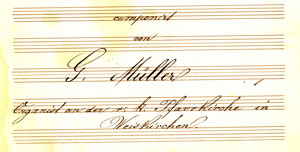 componirt
von
G. Müller,
Organist an der r. k. Pfarrkirche in
Weiskirchen.